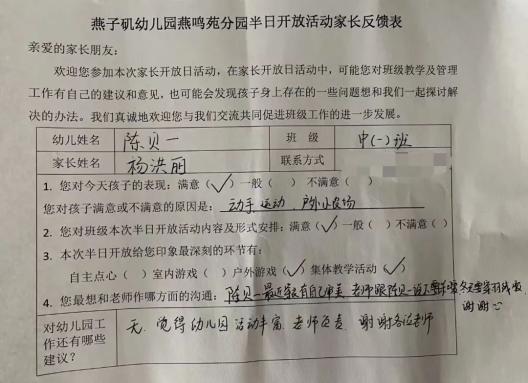 燕子矶幼儿园燕鸣苑分园半日开放活动家长反馈表
亲爱的家长朋友：
欢迎您参加本次家长开放日活动，在家长开放日活动中，可能您对班级教学及管理
工作有自己的建议和意见，也可能会发现孩子身上存在的一些问题想和我们一起探讨解
决的办法。我们真诚地欢迎您与我们交流共同促进班级工作的进一步发展。
幼儿姓名 陈贝一 班 级 中(一)班
家长姓名 杨洪丽 联系方式
1. 您对今天孩子的表现：满意（✓）一般（ ） 不满意（ ）
您对孩子满意或不满意的原因是： 动手运动、户外小农场
2. 您对班级本次半日开放活动内容及形式安排：满意（✓）一般（ ）不满意（ ）
3. 本次半日开放给您印象最深刻的环节有：
自主点心（ ）室内游戏（ ）户外游戏（✓）集体教学活动（✓）
4. 您最想和老师作哪方面的沟通： 陈贝一最近 有自己审美 老师跟陈贝一说
谢谢
对幼儿园工
作还有哪些
建议？
无. 觉得幼儿园活动丰富 老师负责 谢谢各位老师